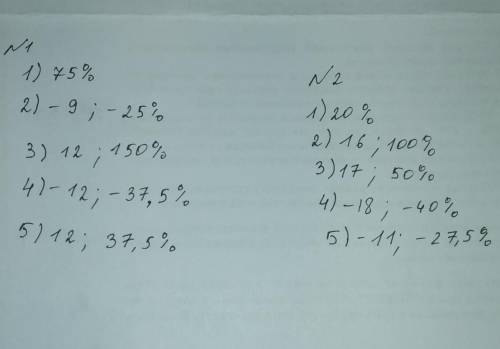 №1
1) 75%
2) - 9 ; - 25%
3) 12 ; 150%
4) - 12 ; - 37,5%
5) 12 ; 37,5%
№2
1) 20%
2) 16 ; 100%
3) 17 ; 50%
4) - 18 ; - 40%
5) - 11 ; - 27,5%